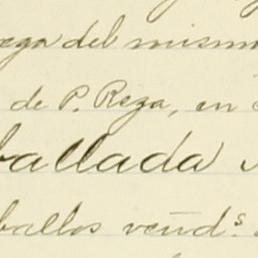 del mismo
de P. Reza, en
ballada
ballos vend.s